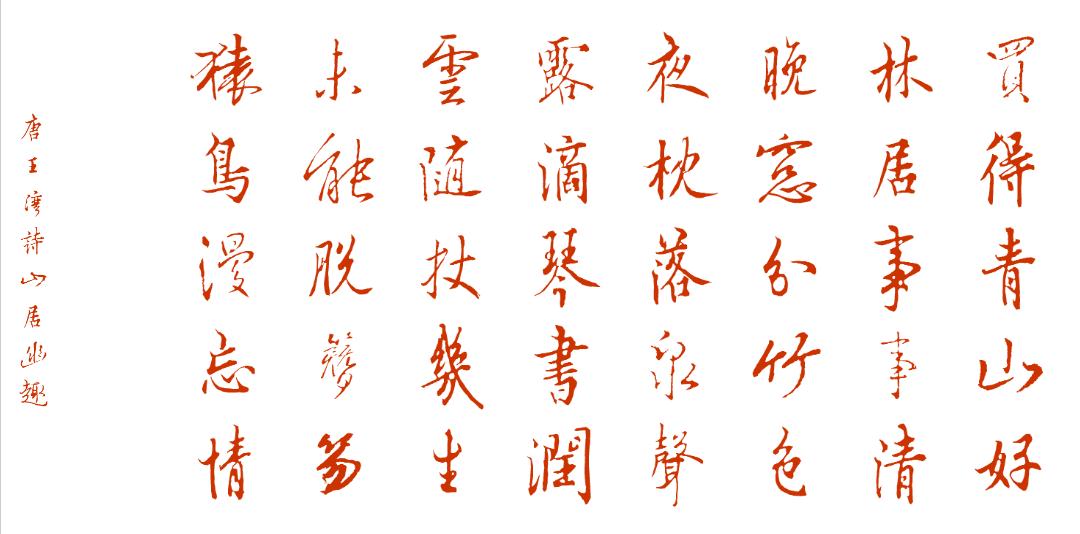 買得青山好
林居事事清
晚窓分竹色
夜枕落泉聲
露滴琴書潤
雲隨杖幾生
未能脫簪笏
猿鳥漫忘情
唐王灣詩山居幽趣